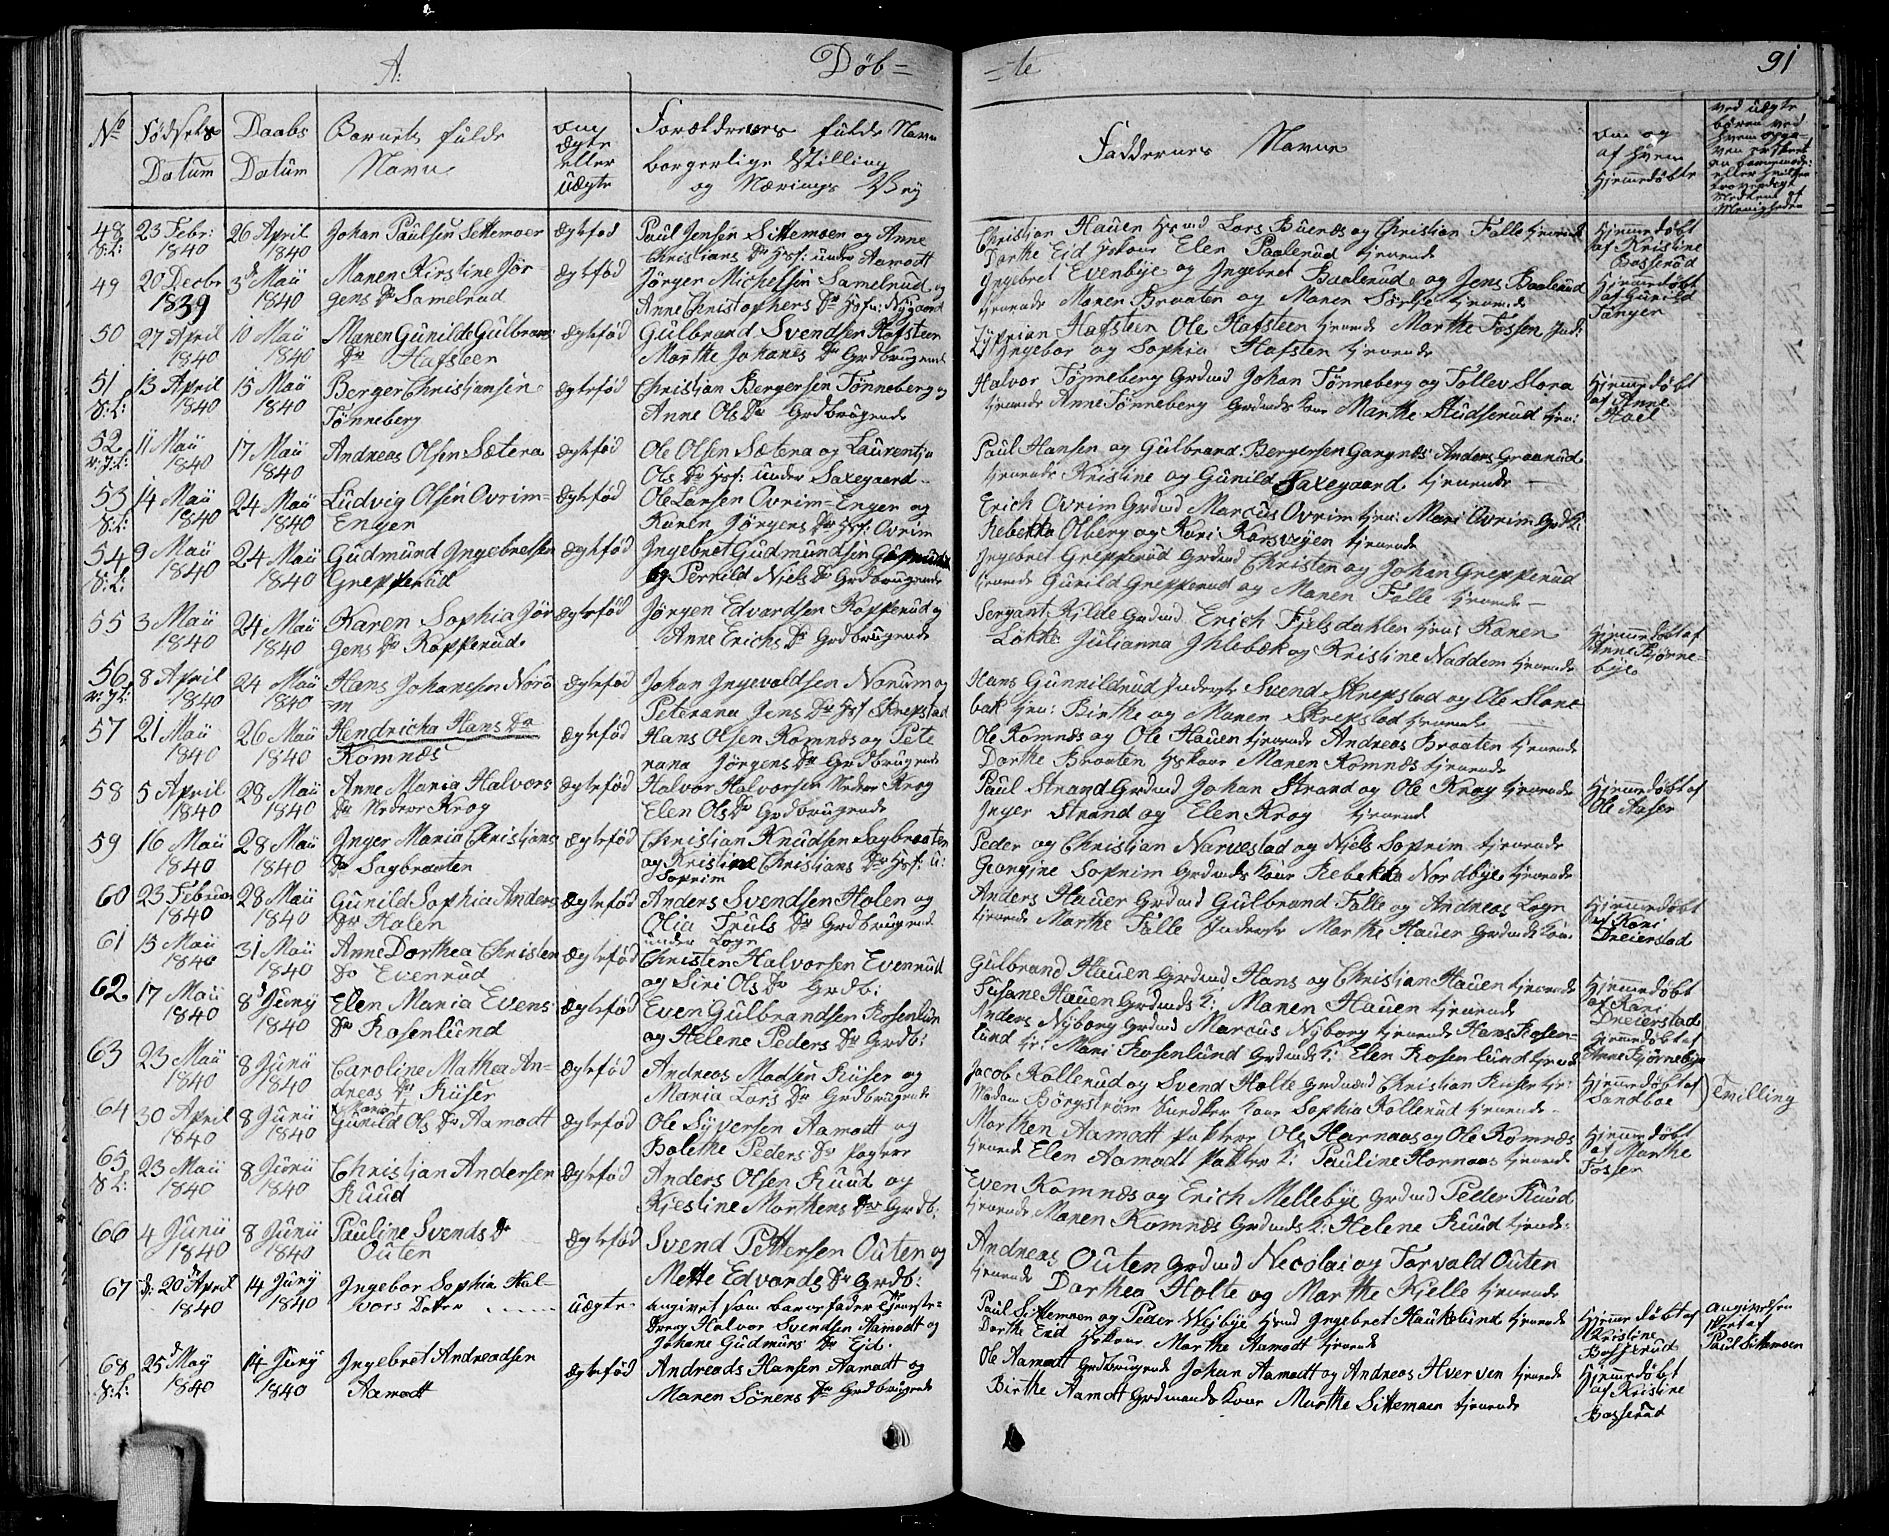 A:
Døb=
=te
91
No
Fødsels Datum
Daabs Datum
Barnets fulde Navn
om ægte eller uægte
Forældrenes fulde Navn borgerlige Stilling og Nærings Vej
Faddernes Navne
om og af hvem hjemmedøbt
48 23 Febr: 1840 26 April 1840 Johan Paulsen Settemoer ægtefød Paul Jensen Sittemoen og Anne Christians Dr Hsf: under Aamodt
Christian Hauen Hsmd Lars Buenæs og Christian Falle tjenende
Dorthe Eid Hskone Elen Paalerud tjenende
Hjemmedøbt af Kristine Basserud
49 20 Decbr 1839 3d Maii 1840 Maren Kirstine Jørgens Dr Samelrud ægtefød Jørger Michelsen Samelrud og Anne Christophers Dr Hsf: Nygaard
Ingebret Evenbye og Ingebret Baalerud og Jens Baalerud
tjenende Maren Braaten og Maren Sørlje tjenende
Hjemmedøbt af Gunild Tanger
50 27 April 1840 10 Maii 1840 Maren Gunilde Gulbrans Dr Hafsteen ægtefød Gulbrand Svendsen Hafsteen Marthe Johanes Dr Grdbrugende
Zyprian Hafsteen Ole Hafsteen tjenende Marthe Fossen Inds:
Ingebor og Sophia Hafsten tjenende
51 S:L: 13 April 1840 15 Maii 1840 Berger Christiansen Tønneberg ægtefød Christian Bergersen Tønneberg og Anne Ols Dr Grdbrugende
Halvor Tønneberg Grdmd Johan Tønneberg og Tollev Slora
tjenende Anne Tønneberg Grdmds Kone Marthe Studserud tjen:
Hjemmedøbt af Anne Hoel
52 11 Maii 1840 17 Maii 1840 Andreas Olsen Sætera ægtefød Ole Olsen Sætera og Laurentja Ols Dr Hsf: under Saxegaard
Paul Hansen og Gulbrand Bergersen Gangnæs Anders Graarud
tjenende Kristine og Gunild Saxegaard tjenende
53 S:L: 14 Maii 1840 24 Maii 1840 Ludvig Olsen Ovrim-Engen ægtefød Ole Larsen Ovrim-Enger og Karen Jørgens Dr Hsf: Ovrim
Erich Ovrim Grdmd Marcus Ovrim tjen: Mari Ovrim Grdk:
Rebekka Olberg og Kari Korsvejen tjenende
54 S:L: 9 Maii 1840 24 Maii 1840 Gudmund Ingebretsen Grepperud ægtefød Ingebret Gudmundsen Grepperud og Pernild Niels Dr Grdbrugende
Ingebret Grepperud Grdmd Christen og Johan Grepperud
tjenende Gurild Grepperud og Maren Falle tjenende
55 3 Maii 1840 24 Maii 1840 Karen Sophia Jørgens Dr Kopperud ægtefød Jørgen Edvardsen Kopperud og Anne Erichs Dr Grdbrugende
Sergant Kilde Grdmd Erich Fjelsdahlen tjens Karen
Løkke Julianna Ihlebæk og Kristine Naddem tjenende
Hjemmedøbt af Anne Bjørnebye
56 8 April 1840 24 Maii 1840 Hans Johansen Norum ægtefød Johan Ingevaldsen Norum og Peterana Jens Dr Hsf Skrepstad
Hans Gunnildrud Inderst Svend Skrepstad og Ole Slore
bak tjen: Birthe og Maren Skrepstad tjenende
57 21 Maii 1840 26 Maii 1840 Hendricka Hans Dr Komnæs ægtefød Hans Olsen Komnæs og Peterana Jørgens Dr Grdbrugende
Ole Komnæs og Ole Hauen tjenende Andreas Braaten tjenende
Dorthe Braaten Hskone Maren Komnæs tjenende
58 5 April 1840 28 Maii 1840 Anne Maria Halvors Dr Nedre Krog ægtefød Halvor Halvorsen Nedre Krog Elen Ols Dr Grdbrugende
Paul Strand Grdmd Johan Strand og Ole Krog tjenende
Inger Strand og Elen Krog tjenende
Hjemmedøbt af Ole Aaser
59 16 Maii 1840 28 Maii 1840 Inger Maria Christians Dr Sagbraaten ægtefød Christian Knudsen Sagbraaten og Kristine Christians Dr Hsf: u: Soprim
Peder og Christian Narvestad og Niels Soprim tjenende
Grongine Soprim Grdmds Kone Rebekka Nordbye tjenende
60 23 Februar 1840 28 Maii 1840 Gunild Sophia Anders Dr Holen ægtefød Anders Svendsen Holen og Olia Truls Dr Grdbrugende under Logn
Anders Hauer Grdmd Gulbrand Falle og Andreas Logn
tjenende Marthe Falle Inderst Marthe Hauer Grdmds Kone
Hjemmedøbt af Kari Dreierstad
61 15 Maii 1840 31 Maii 1840 Anne Dorthea Christen Dr Evenrud ægtefød Christen Halvorsen Evenrud og Siri Ols Dr Grdb:
Gulbrand Hauen Grdmd Hans og Christian Hauen tjenende
Susane Hauen Grdmds K: Maren Hauen tjenende
Hjemmedøbt af Kari Dreierstad
62. 17 Maii 1840 8d Juny 1840 Elen Maria Evens Dr Rosenlund ægtefød Even Gulbrandsen Rosenlun og Helene Peders Dr Grdb:
Anders Nyborg Grdmd Marcus Nyborg tjenende Hans Rosenlund tj: Mari Rosenlund Grdmds K: Elen Rosenlund tjend
Hjemmedøbt af Anne Bjørnebye
63 23 Maii 1840 8 Junii 1840 Caroline Mathea Andreas Dr Kiiser ægtefød Andreas Madsen Kiiser og Maria Lars Dr Grdbrugende
Jacob Kollerud og Svend Holte Grdmænd Christian Kiiser tje:
Madam Børgstrøm Sundker Kone Sophia Kollerud tjenende
Hjemmedøbt af Sandboe
Tvilling
64 30 April 1840 8 Junii 1840 Gunild Maria Ols Dr Aamodt ægtefød Ole Syversen Aamodt og Bolethe Peders Dr Pagter
Morthen Aamodt Pakter Ole Harnaas og Ole Komnæs
tjenende Elen Aamodt Pakter K: Pauline Hornaas tjenende
Hjemmedøbt af Marthe Fosser
65 S:L: 23 Maii 1840 8 Junii 1840 Christian Andersen Ruud ægtefød Anders Olsen Ruud og Kjestine Morthens Dr Grdb:
Even Komnæs og Erich Mellebye Grdmd Peder Ruud
tjenende Maren Komnæs Grdmds K: Helene Ruud tjende:
66 4 Junii 1840 8 Junii 1840 Pauline Svends Dr Outen ægtefød Svend Pettersen Outen og Mette Edvards Dr Grdb:
Andreas Outen Grdmd Nicolai og Torvald Outen
tjenende Dorthea Holte og Marthe Kjelle tjenende
67 d: 20de April 1840 14 Juny 1840 Ingebor Sophia Halvors Datter uægte angivet som barnefader Tjenestedreng Halvor Svendsen Aamodt og Johane Gudmurs Dr Eid.
Paul Sittemoen og Peder Wejbye Hsmd Ingebret Haukelund tjenende
Dorthe Eid Hskone Marthe Aamodt tjenende
Hjemmedøbt af Kirstine Basserud
angivelsen skeet af Paul Sittemoen
68 S:L: 25d May 1840 14 Juny 1840 Ingebret Andreadsen Aamodt ægtefød Andreads Hansen Aamodt og Maren Sørens Dr Grdbrugende
Ole Aamodt Grdbrugende Johan Aamodt og Andreas Hverven tjenende
Birthe Aamodt Grdmands Kone Marthe Sittemoen tjenende
Hjemmedøbt af Kristine Basserud